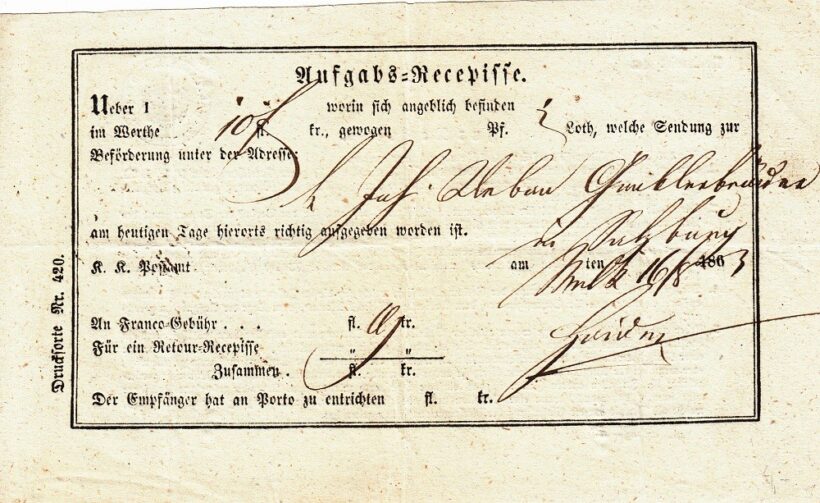 Aufgabs-Recepisse.
Ueber 1 worin sich angeblich befinden
im Werthe 10 fl. kr., gewogen Pf. ½ Loth, welche Sendung zur
Beförderung unter der Adresse:
Joh. Urban
am heutigen Tage hierorts richtig aufgegeben worden ist.
in Salzburg
K. K. Postamt am ten 186
Melk 16/8 3
An Franco-Gebühr . . . fl. kr.
Für ein Retour-Recepisse „ „
Zusammen . fl. kr.
Der Empfänger hat an Porto zu entrichten fl. kr.
Drucksorte Nr. 420.